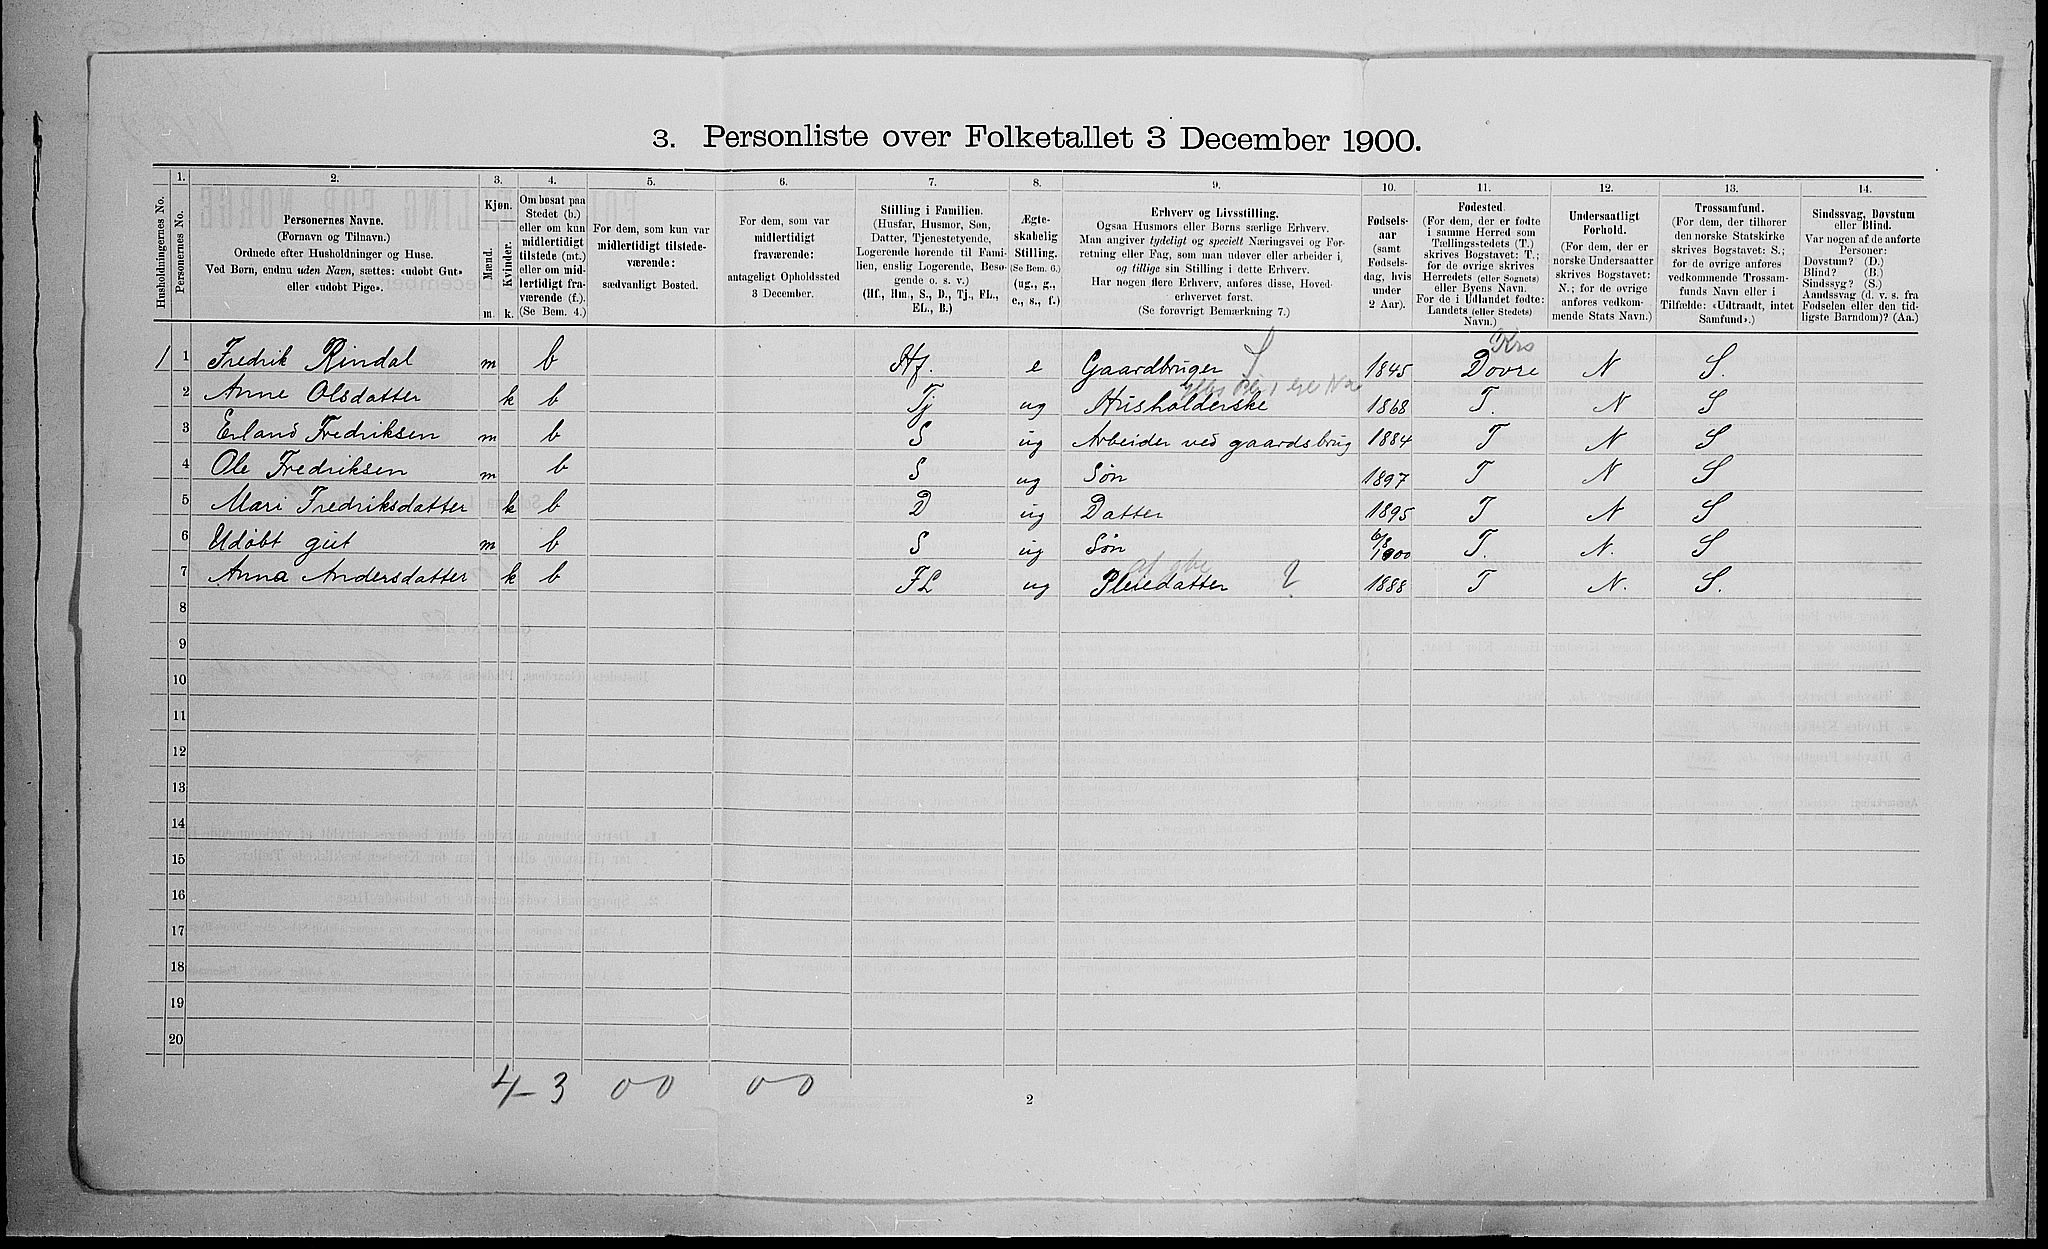 3. Personliste over Folketallet 3 December 1900.
1. 2. 3. 4. 5. 6. 7. 8. 9. 10. 11. 12. 13. 14.
Husholdningernes No.
Personernes No.
Personernes Navne.
(Fornavn og Tilnavn.)
Ordnede efter Husholdninger og Huse.
Ved Børn, endnu uden Navn, sættes: «udøbt Gut»
eller «udøbt Pige».
Kjøn.
Mænd.
Kvinder.
m. k.
Om bosat paa
Stedet (b.)
eller om kun
midlertidigt
tilstede (mt.)
eller om mid-
lertidigt fra-
værende (f.).
(Se Bem. 4.)
For dem, som kun var
midlertidigt tilstede-
værende:
sædvanligt Bosted.
For dem, som var
midlertidigt
fraværende:
antageligt Opholdssted
3 December.
Stilling i Familien.
(Husfar, Husmor, Søn,
Datter, Tjenestetyende,
Logerende hørende til Fami-
lien, enslig Logerende, Besø-
gende o. s. v.)
(Hf., Hm., S., D., Tj., FL.,
EL., B.)
Ægte-
skabelig
Stilling.
(Se Bem. 6.)
(ug., g.,
e., s., f.)
Erhverv og Livsstilling.
Ogsaa Husmors eller Børns særlige Erhverv.
Man angiver tydeligt og specielt Næringsvei og For-
retning eller Fag, som man udøver eller arbeider i,
og tillige sin Stilling i dette Erhverv.
Har nogen flere Erhverv, anføres disse, Hoved-
erhvervet først.
(Se forøvrigt Bemærkning 7.)
Fødsels-
aar
(samt
Fødsels-
dag, hvis
under
2 Aar).
Fødested.
(For dem, der er fødte
i samme Herred som
Tællingsstedets (T.)
skrives Bogstavet: T.;
for de øvrige skrives
Herredets (eller Sognets)
eller Byens Navn.
For de i Udlandet fødte:
Landets (eller Stedets)
Navn.)
Undersaatligt
Forhold.
(For dem, der er
norske Undersaatter
skrives Bogstavet:
N.; for de øvrige
anføres vedkom-
mende Stats Navn.)
Trossamfund.
(For dem, der tilhører
den norske Statskirke
skrives Bogstavet: S.;
for de øvrige anføres
vedkommende Trossam-
funds Navn eller i
Tilfælde: «Udtraadt, intet
Samfund».)
Sindssvag, Døvstum
eller Blind.
Var nogen af de anførte
Personer:
Døvstum? (D.)
Blind? (B.)
Sindssyg? (S.)
Aandssvag (d. v. s. fra
Fødselen eller den tid-
ligste Barndom)? (Aa.)
Krs
1 1 Fredrik Rindal m b Hf. e Gaardbruger S 1845 Dovre N S.
2 Anne Olsdatter k b Tj ug Husholderske 1868 T. N S
3 Erland Fredriksen m b S ug Arbeider ved gaardsbrug 1884 T N S
4 Ole Fredriksen m b S ug Søn 1897 T N S
5 Mari Fredriksdatter k b D ug Datter 1895 T N S
6 Udøbt gut m b S ug Søn 6/8 1900 T. N. S
7 Anna Andersdatter k b FL ug Pleiedatter ? 1888 T N. S.
8
9
10
11
12
13
14
15
16
17
18
19
20
4-3 00 00
2